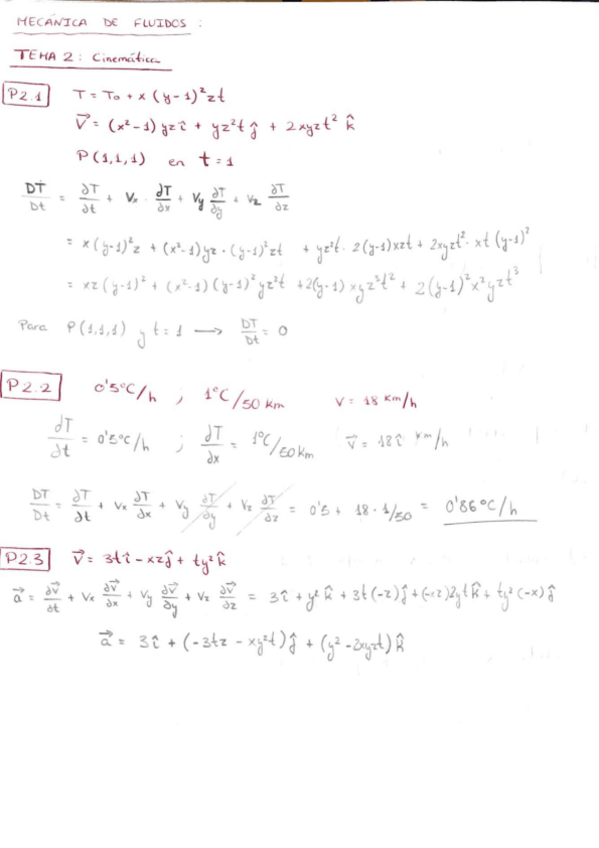 MECÁNICA DE FLUIDOS :
TEMA 2: Cinemática
P2.1 T = T₀ + x (y-1)² zt
V⃗ = (x²-1) yz î + yz²t ĵ + 2xyzt² k̂
P(1,1,1) en t=1
DT/Dt = ∂T/∂t + Vx · ∂T/∂x + Vy ∂T/∂y + Vz ∂T/∂z
= x(y-1)²z + (x²-1)yz · (y-1)²zt + yz²t · 2(y-1)xzt + 2xyzt² · xt(y-1)²
= xz(y-1)² + (x²-1)(y-1)² yz²t + 2(y-1)xyz³t² + 2(y-1)²x²yzt³
Para P(1,1,1) y t=1 → DT/Dt = 0
P2.2 0'5ºC/h ; 1ºC/50 km V = 18 km/h
∂T/∂t = 0'5ºC/h ; ∂T/∂x = 1ºC/50km V⃗ = 18 î km/h
DT/Dt = ∂T/∂t + Vx ∂T/∂x + Vy ∂T/∂y + Vz ∂T/∂z = 0'5 + 18 · 1/50 = 0'86ºC/h
P2.3 V⃗ = 3t î - xz ĵ + ty² k̂
a⃗ = ∂V⃗/∂t + Vx ∂V⃗/∂x + Vy ∂V⃗/∂y + Vz ∂V⃗/∂z = 3î + y² k̂ + 3t(-z)ĵ + (-xz)2yt k̂ + ty²(-x) ĵ
a⃗ = 3î + (-3tz - xy²t) ĵ + (y² - 2xyzt) k̂